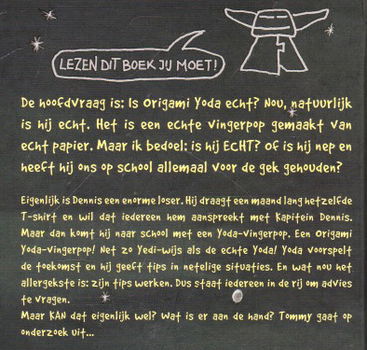 LEZEN DIT BOEK JIJ MOET!
De hoofdvraag is: Is Origami Yoda echt? Nou, natuurlijk
is hij echt. Het is een echte vingerpop gemaakt van
echt papier. Maar ik bedoel: is hij ECHT? Of is hij nep en
heeft hij ons op school allemaal voor de gek gehouden?
Eigenlijk is Dennis een enorme loser. Hij draagt een maand lang hetzelfde
T-shirt en wil dat iedereen hem aanspreekt met Kapitein Dennis.
Maar dan komt hij naar school met een Yoda-vingerpop. Een Origami
Yoda-vingerpop! Net zo Yedi-wijs als de echte Yoda! Yoda voorspelt
de toekomst en hij geeft tips in netelige situaties. En wat nou het
allergekste is: zijn tips werken. Dus staat iedereen in de rij om advies
te vragen.
Maar KAN dat eigenlijk wel? Wat is er aan de hand? Tommy gaat op
onderzoek uit...